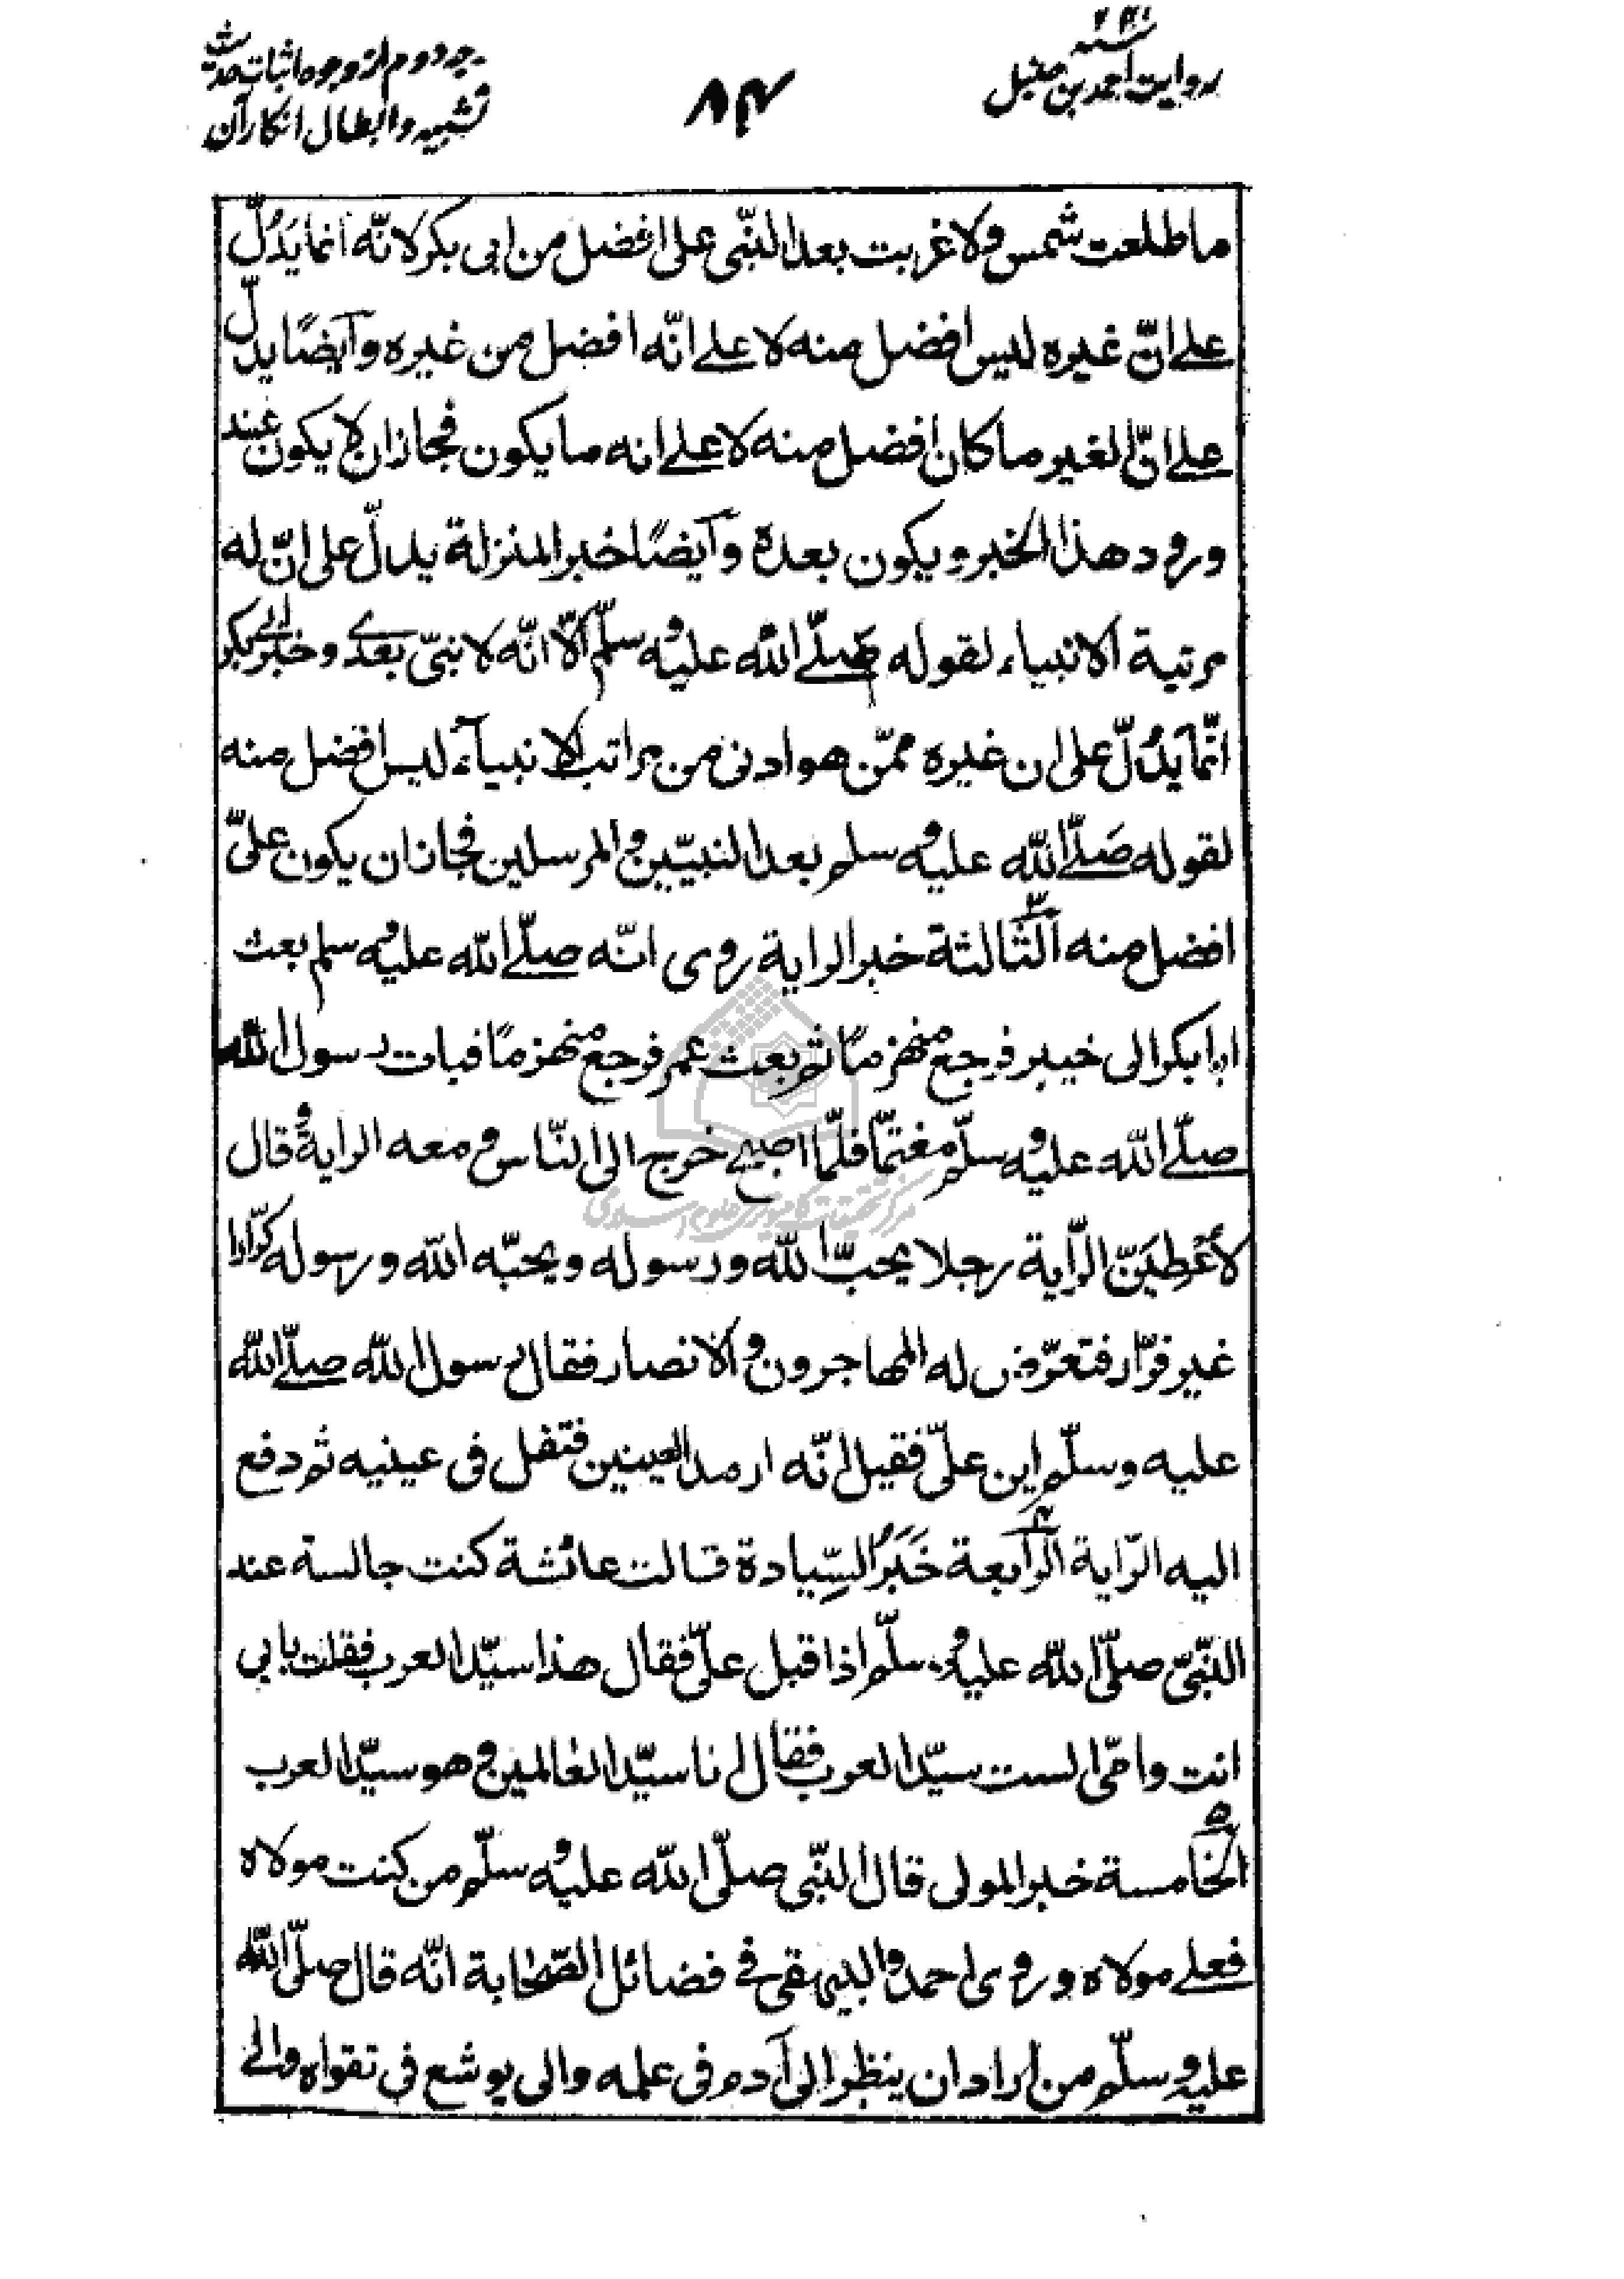 ۲۴۱ سنه
روایت احمد بن حنبل
۸۴
وجه دوم از وجوه اثبات حدیث
تشبیه و ابطال انکار آن
ما طلعت شمس ولا غربت بعد النبّی علی افضل من ابی بکر لانّه انما یَدُلّ
علے انّ غیره لیس افضل منه لا علے انّه افضل من غیره وآیضًا یدلّ
علے انّ الغیر ما کان افضل منه لا علے انه ما یکون فجاز ان لا یکون عند
ورود هذا الخبر ویکون بعده وآیضًا خبر المنزلة یدلّ علی انّ له
مرتبة الانبیاء لقوله صلّے اللّه علیه وسلّم الّا انّه لا نبیّ بعدے وخبر ابی بکر
انّما یَدُلّ علی ان غیره ممّن هو ادنی من مراتب الانبیآء لیس افضل منه
لقوله صَلّے اللّه علیه وسلم بعد النبیّین والمرسلین فجاز ان یکون علیّ
افضل منه الثّالثة ۳ خبر الرایة روی انّه صلّے اللّه علیه وسلم بعث
ابا بکر الی خیبر فرجع منهزمًا ثم بعث عمر فرجع منهزمًا فبات رسول اللّه
صلّے اللّه علیه وسلّم مغتمّا فلمّا اصبح خرج الی النّاس ومعه الرایة وقال
لاُعْطِیَنّ الرّایة رجلا یحبّ اللّه ورسوله ویحبّه اللّه ورسوله کرّارا
غیر فرّار فتعرّض له المهاجرون والانصار فقال رسول اللّه صلّے اللّه
علیه وسلّم این علیّ فقیل انّه ارمد العینین فتفل فی عینیه ثم دفع
الیه الرّایة الرّابعة ۴ خَبَرُ السِّیادة قالت عائشة کنت جالسة عند
النّبیّ صلّی اللّه علیه وسلّم اذ اقبل علیّ فقال هذا سیّد العرب فقلت بابی
انت وامّی الست سیّد العرب فقال انا سیّد العالمین وهو سیّد العرب
الخامسة ۵ خبر المولی قال النّبّی صلّی اللّه علیه وسلّم من کنت مولاه
فعلے مولاه وروی احمد والبیهقی فی فضائل الصّحابة انّه قال صلّی اللّه
علیه وسلّم من اراد ان ینظر الی آدم فی علمه والی یوشع فی تقواه والے
مرکز تحقیقات کامپیوتری علوم اسلامی